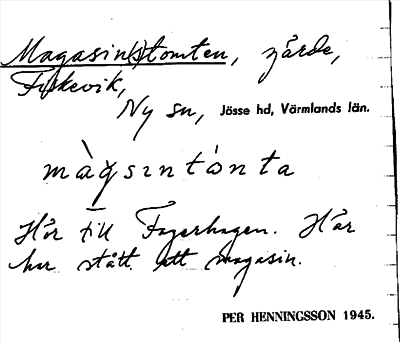 Magasin(s)tomten, gärde,
Fiskevik,
Ny sn, Jösse hd, Värmlands län.
màgsıntònta
Hör till Fagerhagen. Här
har stått ett magasin.
PER HENNINGSSON 1945.